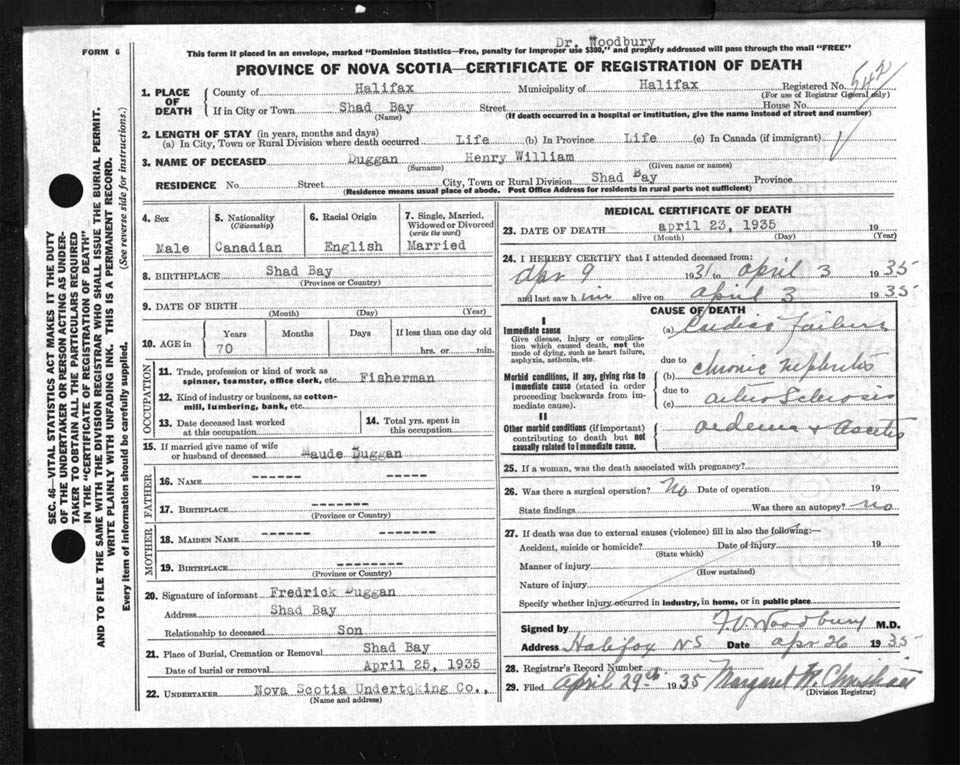 FORM 6
Dr. Woodbury
This form if placed in an envelope, marked "Dominion Statistics—Free, penalty for improper use $300," and properly addressed will pass through the mail "FREE"
PROVINCE OF NOVA SCOTIA—CERTIFICATE OF REGISTRATION OF DEATH
SEC. 46—VITAL STATISTICS ACT MAKES IT THE DUTY
OF THE UNDERTAKER OR PERSON ACTING AS UNDER-
TAKER TO OBTAIN ALL THE PARTICULARS REQUIRED
IN THE "CERTIFICATE OF REGISTRATION OF DEATH"
AND TO FILE THE SAME WITH THE DIVISION REGISTRAR WHO SHALL ISSUE THE BURIAL PERMIT.
WRITE PLAINLY WITH UNFADING INK. THIS IS A PERMANENT RECORD.
Every item of information should be carefully supplied. (See reverse side for instructions.)
1. PLACE OF DEATH
County of Halifax Municipality of Halifax Registered No. 542
(For use of Registrar General only)
If in City or Town Shad Bay Street House No.
(Name) (If death occurred in a hospital or institution, give the name instead of street and number)
2. LENGTH OF STAY (in years, months and days)
(a) In City, Town or Rural Division where death occurred Life (b) In Province Life (c) In Canada (if immigrant)
3. NAME OF DECEASED Duggan Henry William
(Surname) (Given name or names)
RESIDENCE No. Street City, Town or Rural Division Shad Bay Province
(Residence means usual place of abode. Post Office Address for residents in rural parts not sufficient)
4. Sex
Male
5. Nationality
(Citizenship)
Canadian
6. Racial Origin
English
7. Single, Married,
Widowed or Divorced
(write the word)
Married
8. BIRTHPLACE Shad Bay
(Province or Country)
9. DATE OF BIRTH
(Month) (Day) (Year)
10. AGE in Years Months Days If less than one day old
70 hrs. or min.
OCCUPATION
11. Trade, profession or kind of work as
spinner, teamster, office clerk, etc. Fisherman
12. Kind of industry or business, as cotton-
mill, lumbering, bank, etc.
13. Date deceased last worked
at this occupation
14. Total yrs. spent in
this occupation
15. If married give name of wife
or husband of deceased Maude Duggan
FATHER
16. NAME ------ -----
17. BIRTHPLACE ------- -------
(Province or Country)
MOTHER
18. MAIDEN NAME ------ -------
19. BIRTHPLACE --------
(Province or Country)
20. Signature of informant Fredrick Duggan
Address Shad Bay
Relationship to deceased Son
21. Place of Burial, Cremation or Removal Shad Bay
Date of burial or removal April 25, 1935
22. UNDERTAKER Nova Scotia Undertoking Co.,
(Name and address)
MEDICAL CERTIFICATE OF DEATH
23. DATE OF DEATH april 23, 1935 19
(Month) (Day) (Year)
24. I HEREBY CERTIFY that I attended deceased from:
Apr 9 1931 to april 3 1935
and last saw him alive on april 3 1935
CAUSE OF DEATH
I
Immediate cause
Give disease, injury or complica-
tion which caused death, not the
mode of dying, such as heart failure,
asphyxia, asthenia, etc.
(a) Cardiac Failure
due to
Morbid conditions, if any, giving rise to
immediate cause (stated in order
proceeding backwards from im-
mediate cause).
(b) chronic nephritis
due to
(c) arterio Sclerosis
II
Other morbid conditions (if important)
contributing to death but not
causally related to immediate cause.
oedema + Ascites
25. If a woman, was the death associated with pregnancy?
26. Was there a surgical operation? No Date of operation 19
State findings Was there an autopsy? no
27. If death was due to external causes (violence) fill in also the following:—
Accident, suicide or homicide? Date of injury 19
(State which)
Manner of injury
(How sustained)
Nature of injury
Specify whether injury occurred in industry, in home, or in public place
Signed by Woodbury M.D.
Address Halifax NS Date apr 26 1935
28. Registrar's Record Number
29. Filed April 29th 1935 Margaret Christian
(Division Registrar)